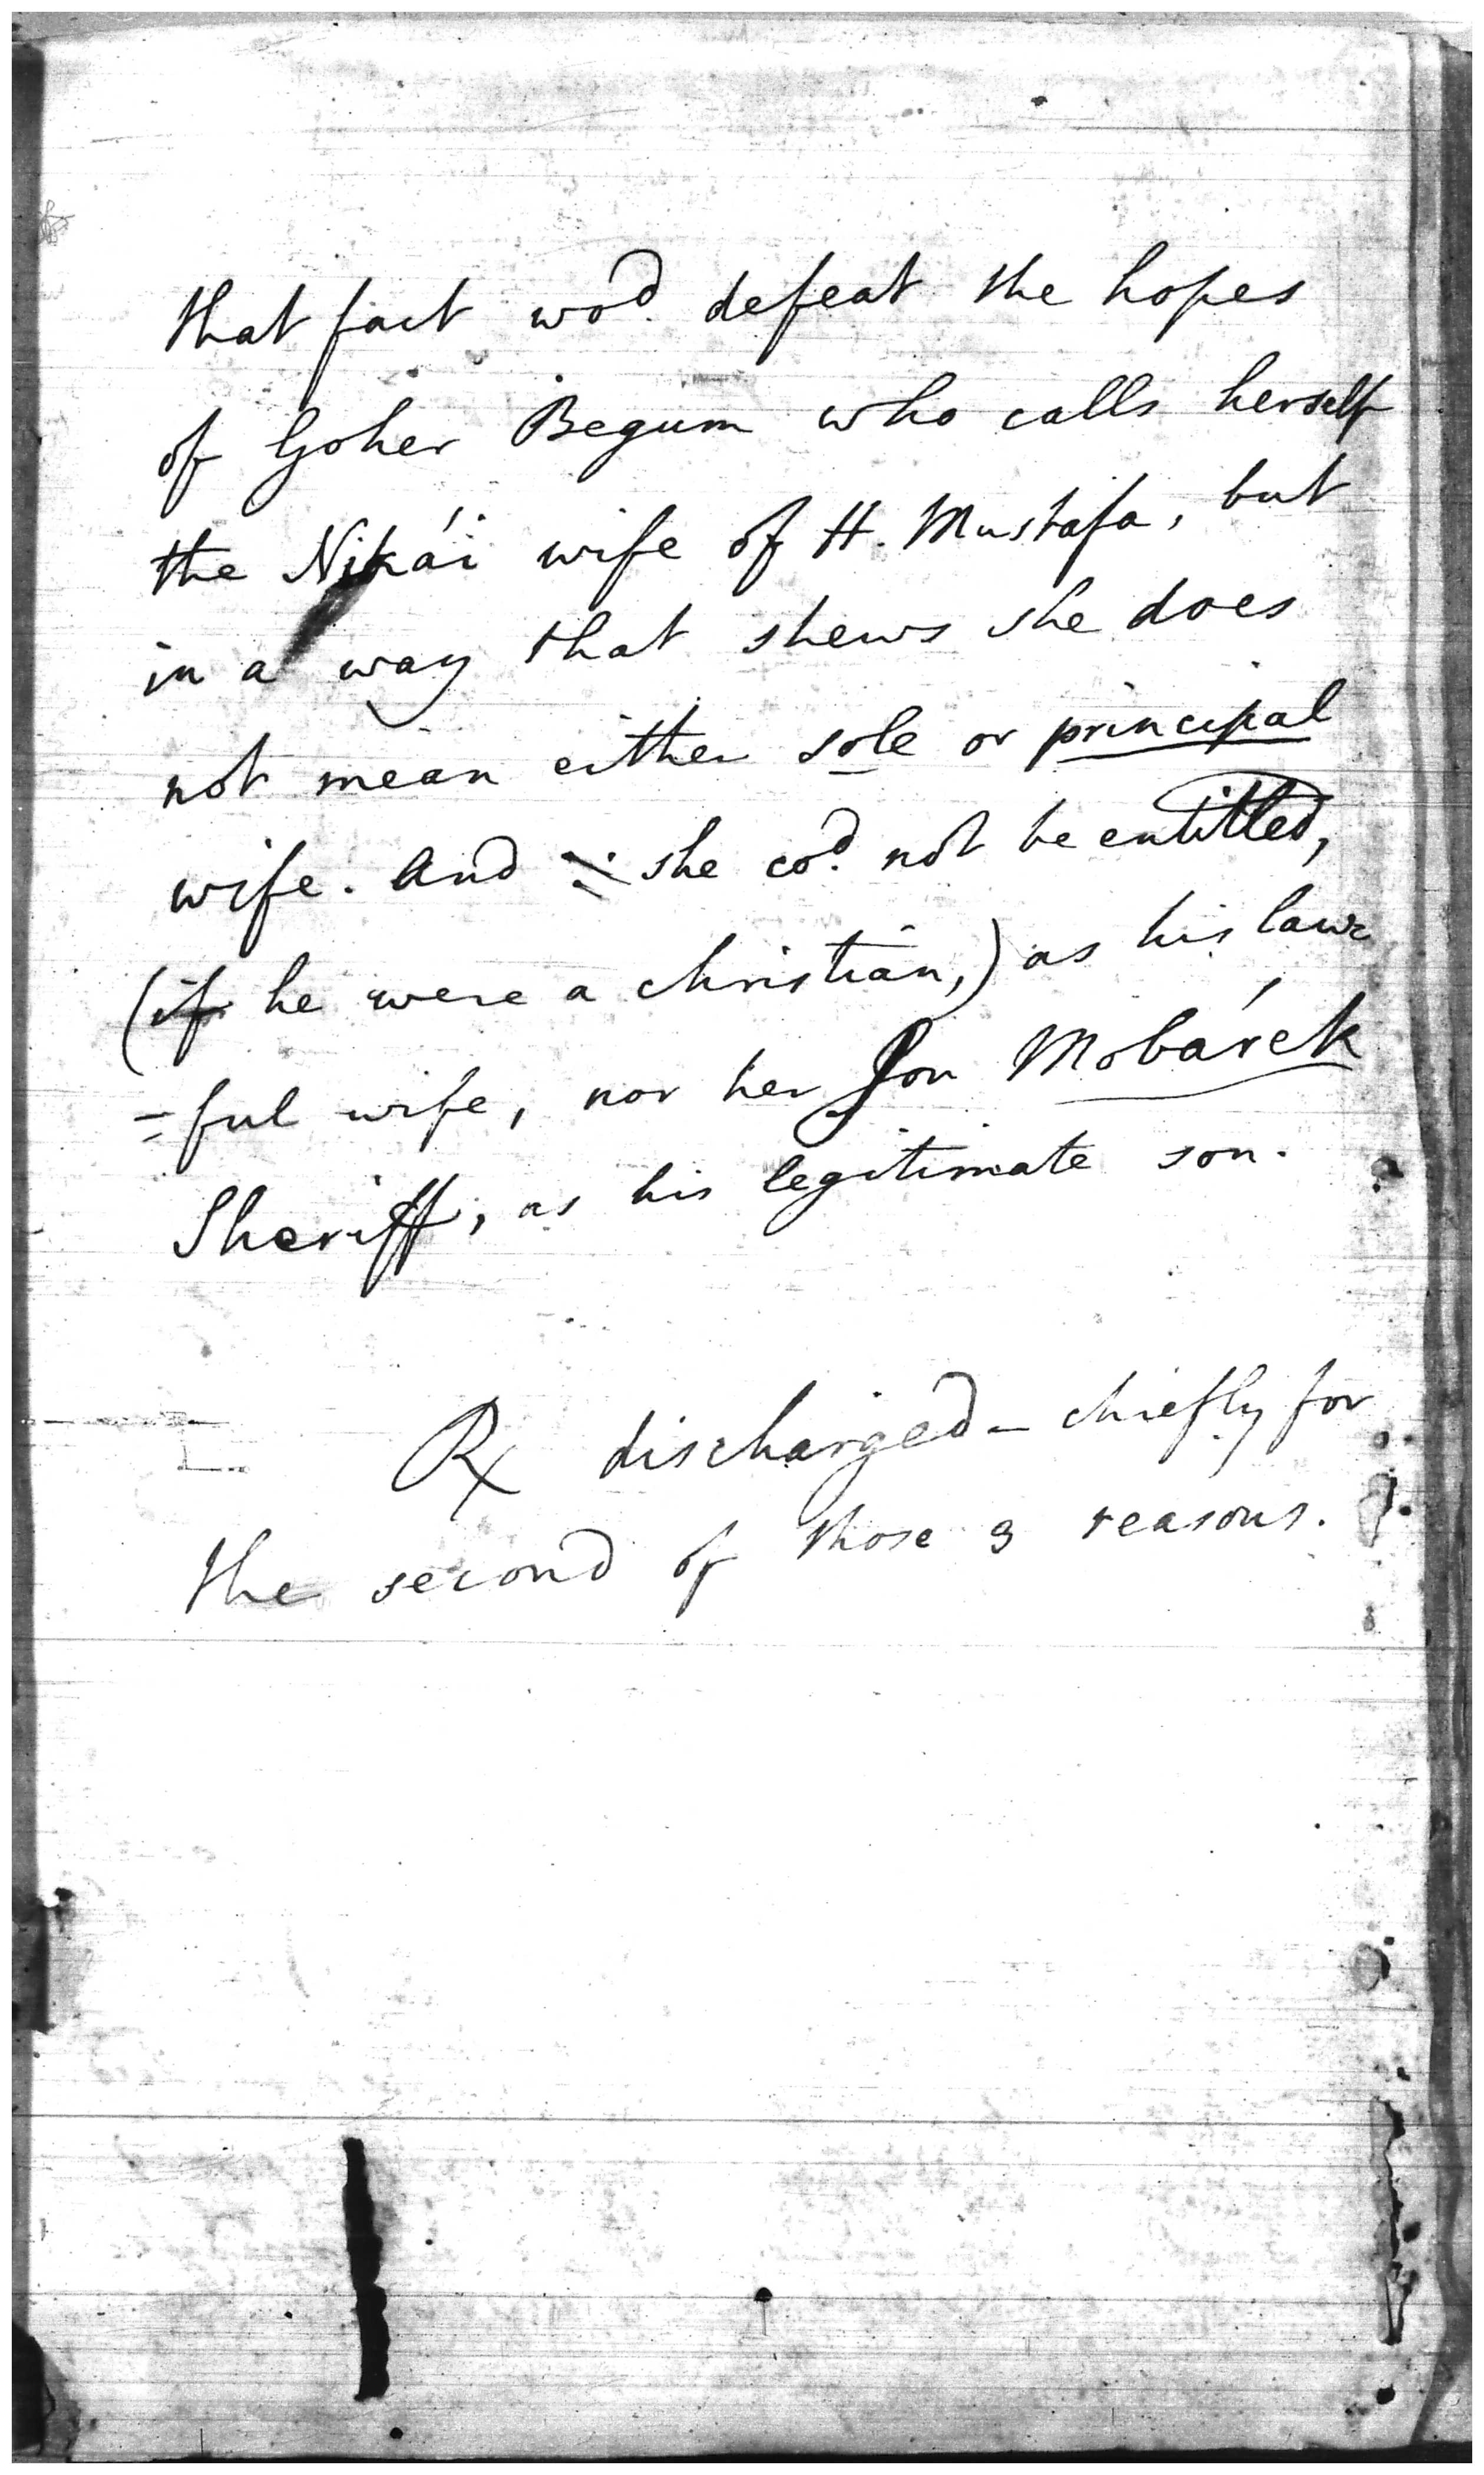 that fact wod. defeat the hopes
of Goher Begum who calls herself
the Nikái wife of H. Mustafa, but
in a way that shews she does
not mean either sole or principal
wife. And she cod. not be entitled,
(if he were a christian,) as his law=
=ful wife, nor her Son Mobárek
Sheriff, as his legitimate son.
Rx discharged – chiefly for
the second of those 3 reasons.